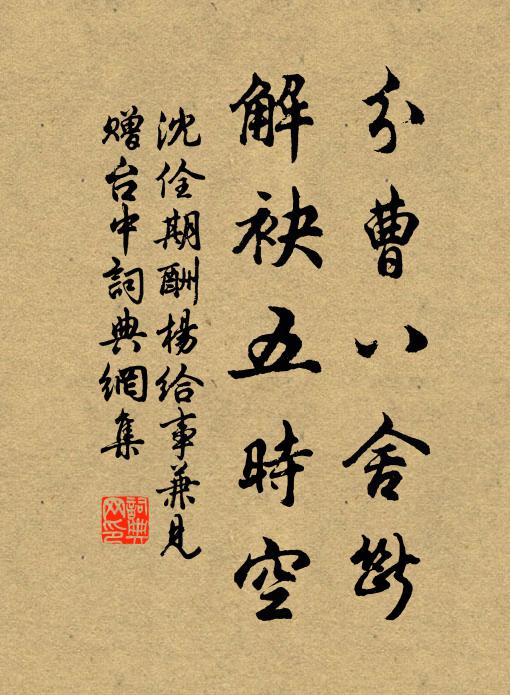 分曹八舍斷
解袂五時空
沈佺期酬楊給事兼見
贈台中詞典網集
詞典
网印